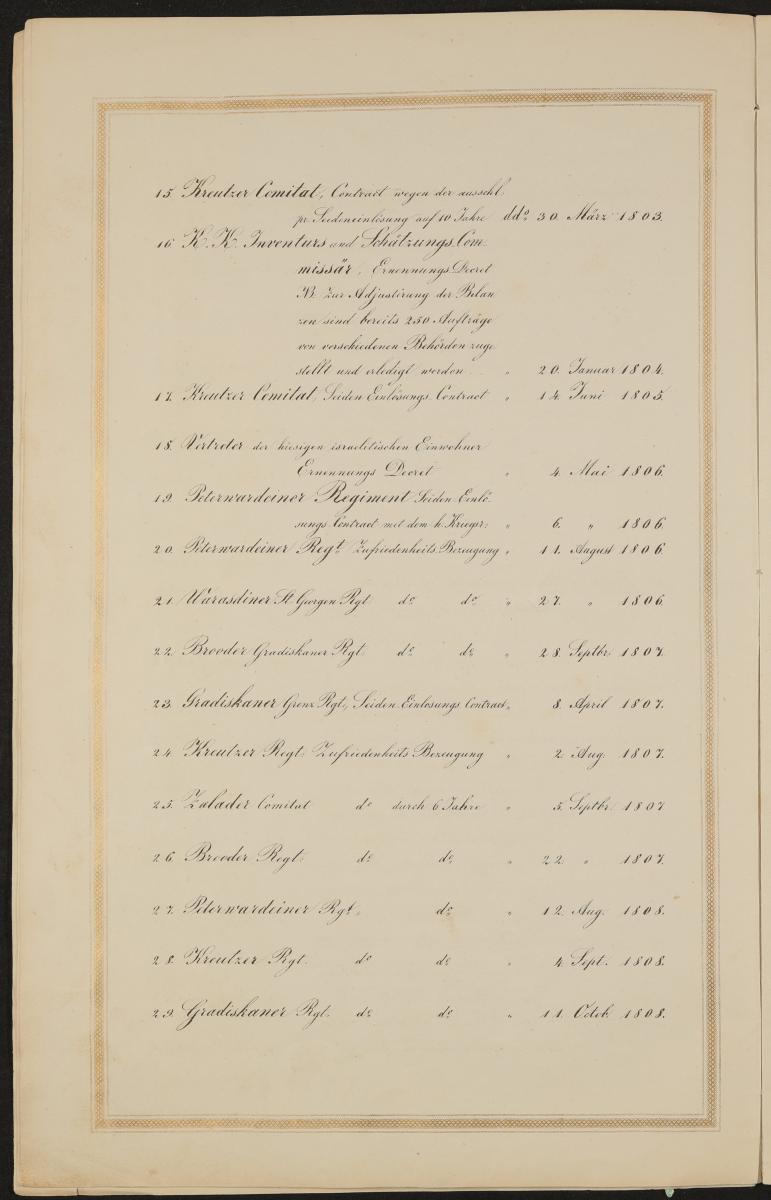 15. Kreutzer Comitat, Contract wegen der ausschl.
pr. Seideneinlösung auf 10 Jahre ddo. 30. März 1803.
16. K. K. Inventurs und Schätzungs Com-
missär, Ernennungs Decret
NB. Zur Adjustirung der Bilan-
zen sind bereits 250 Aufträge
von verschiedenen Behörden zuge
stellt und erledigt worden . . " 20. Januar 1804.
17. Kreutzer Comitat, Seiden Einlösungs Contract " 14. Juni 1805.
18. Vertreter der hiesigen israelitischen Einwohner
Ernennungs Decret " 4. Mai 1806.
19. Peterwardeiner Regiment Seiden Einlö-
sungs Contract mit dem h. Kriegsr: " 6. " 1806.
20. Peterwardeiner Regt. Zufriedenheits Bezeugung " 11. August 1806.
21. Warasdiner St. Georgen Rgt. do. do. " 27. " 1806.
22. Brooder Gradiskaner Rgt. do. do. " 28. Septbr. 1807.
23. Gradiskaner Grenz Rgt., Seiden Einlösungs Contract " 8. April 1807.
24. Kreutzer Regt: Zufriedenheits Bezeugung " 2. Aug. 1807.
25. Zalader Comitat do. durch 6 Jahre " 5. Septbr. 1807
26. Brooder Regt: do. do. " 22. " 1807.
27. Peterwardeiner Rgt. " do. " 12. Aug. 1808.
28. Kreutzer Rgt. do. do. " 4. Sept. 1808.
29. Gradiskaner Rgt. do. do. " 11. Octob. 1808.